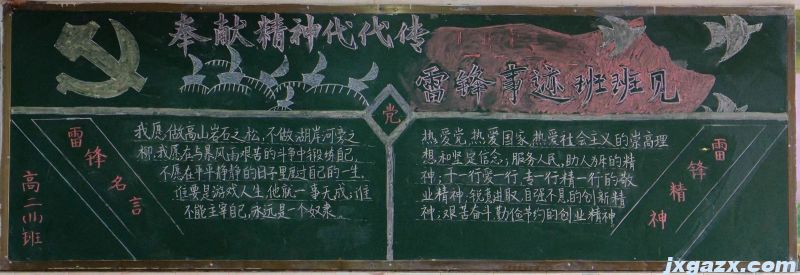 奉献精神代代传
雷锋事迹班班见
党
雷锋名言
高二(11)班
我愿做高山岩石之松,不做湖岸河旁之
柳,我愿在与暴风雨艰苦的斗争中锻炼自己,
不愿在平平静静的日子里度过自己的一生,
谁要是游戏人生,他就一事无成;谁
不能主宰自己,永远是一个奴隶
热爱党,热爱国家,热爱社会主义的崇高理
想和坚定信念;服务人民,助人为乐的精
神;干一行爱一行,专一行精一行的敬
业精神;锐意进取,自强不息的创新精
神;艰苦奋斗,勤俭节约的创业精神
雷锋精神
jxgazx.com